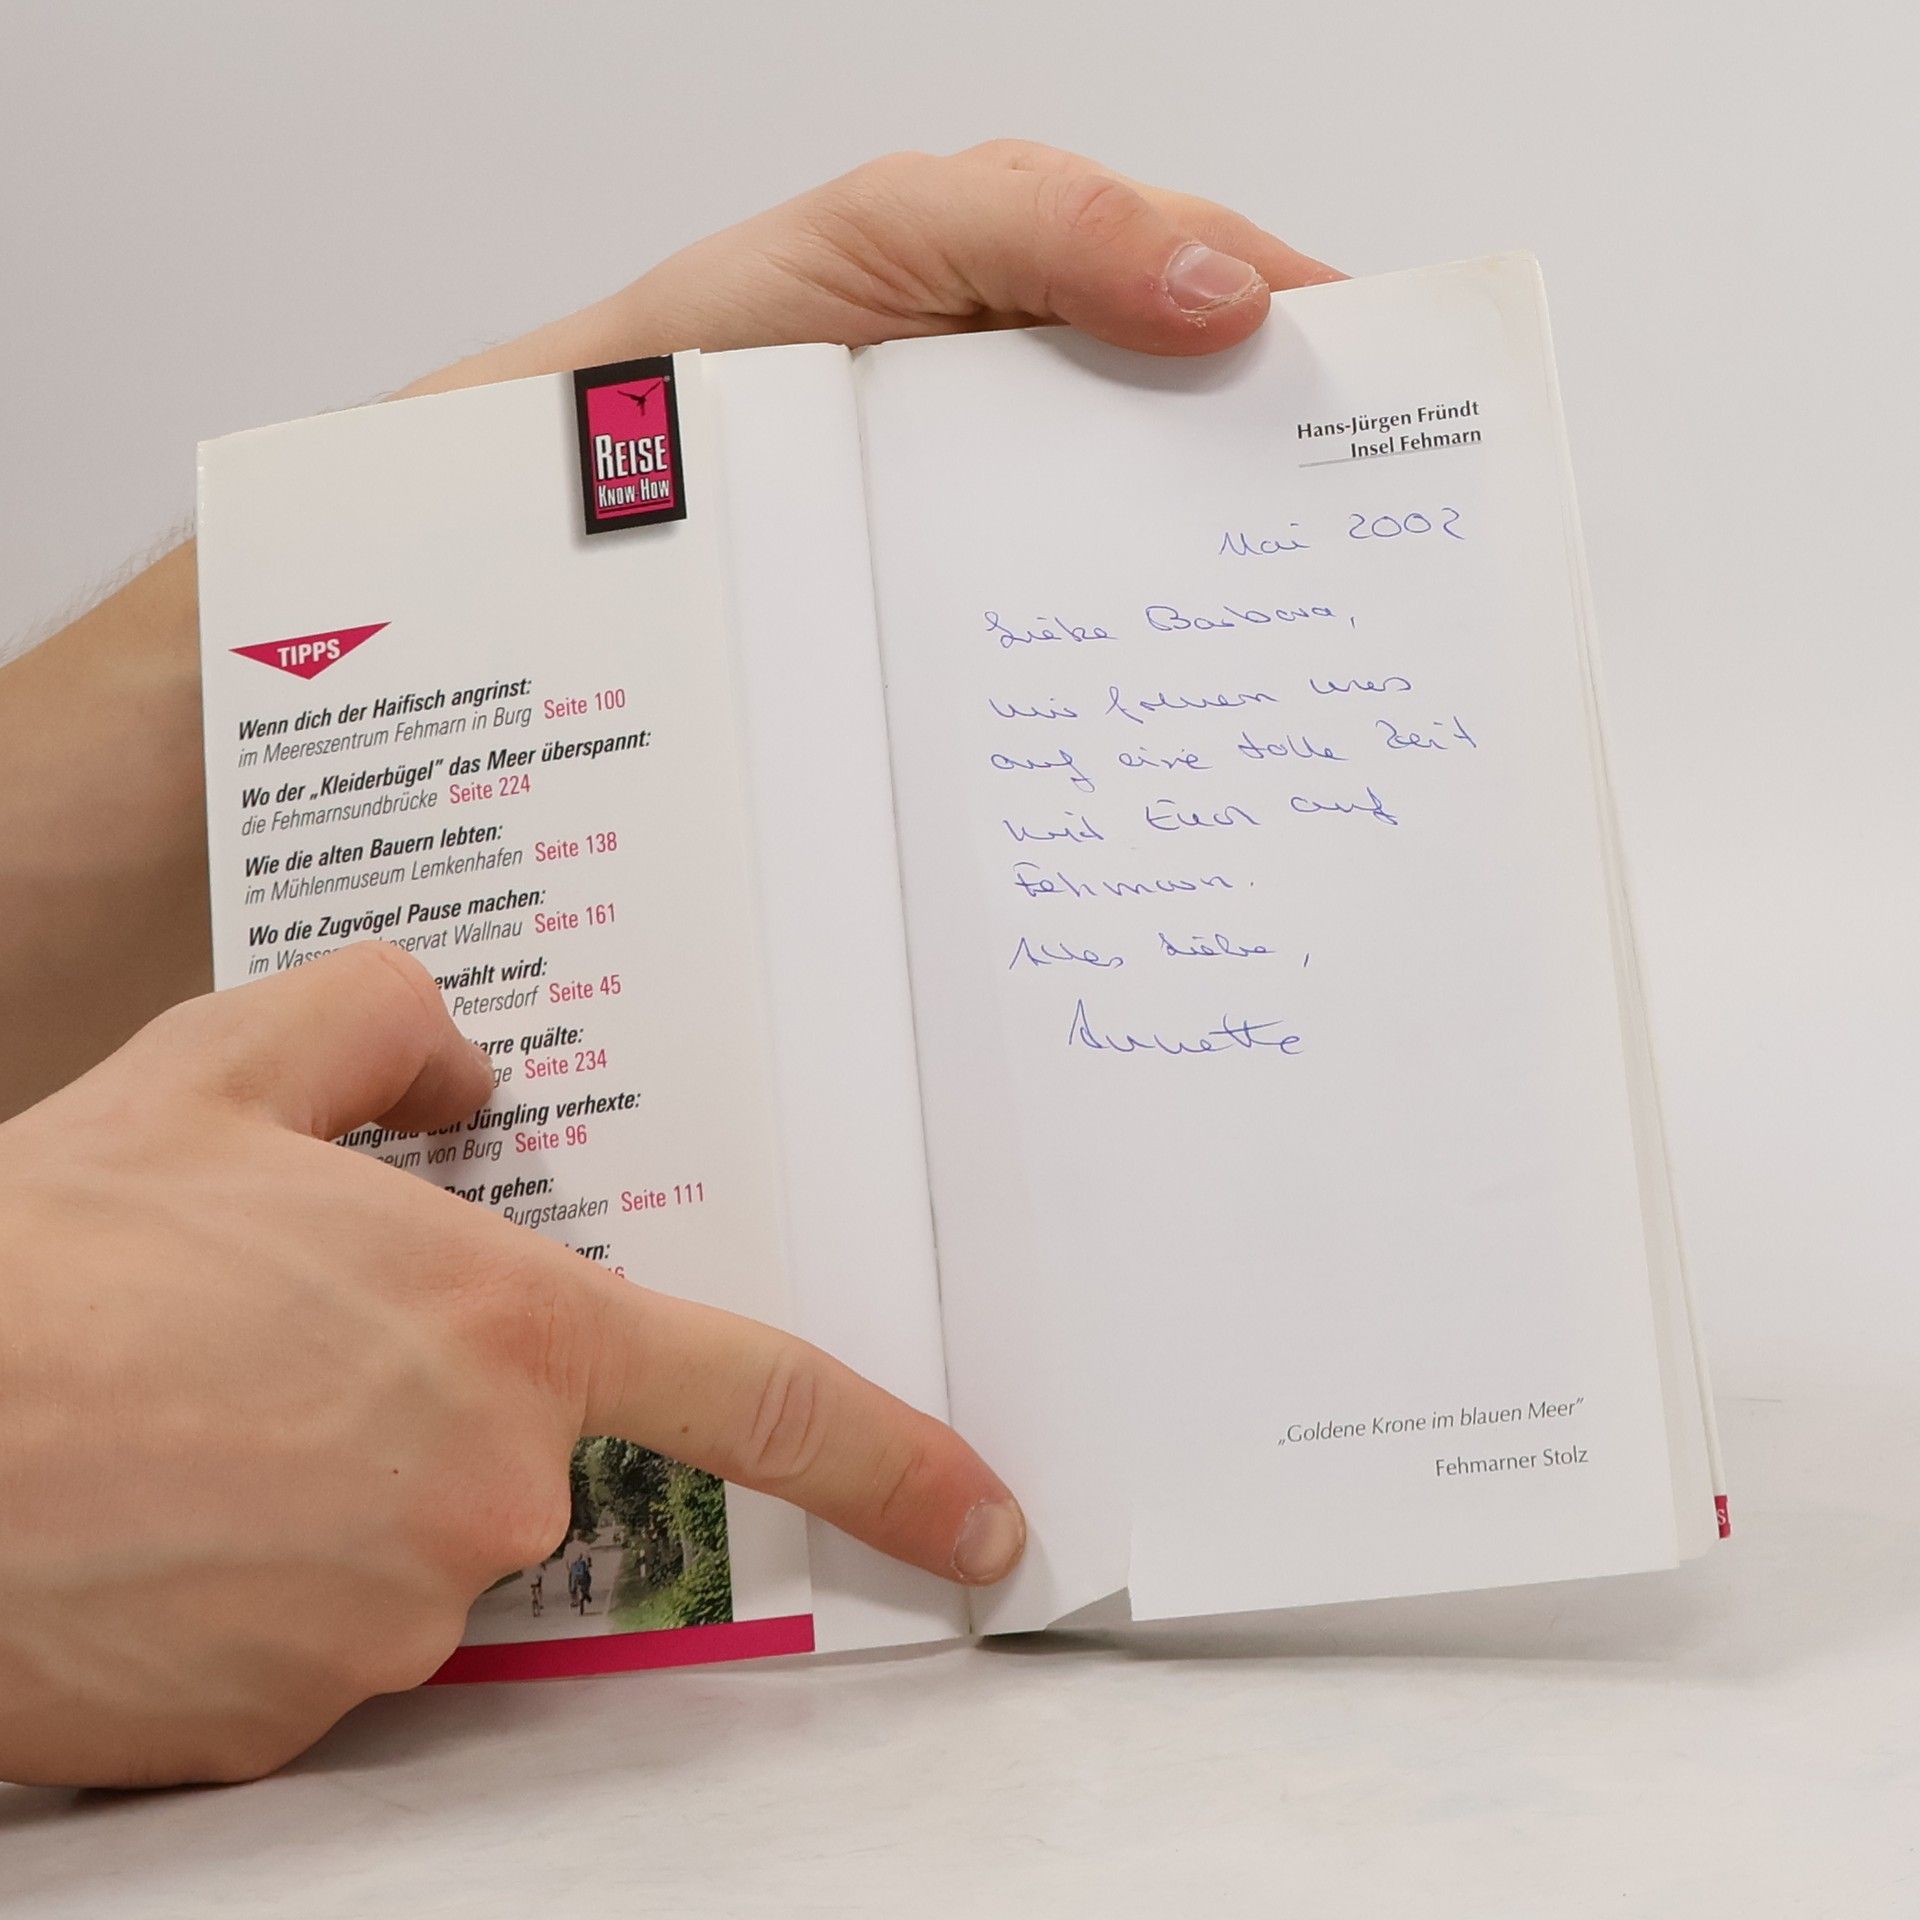 REISE
KNOW-HOW
TIPPS
Wenn dich der Haifisch angrinst:
im Meereszentrum Fehmarn in Burg Seite 100
Wo der „Kleiderbügel" das Meer überspannt:
die Fehmarnsundbrücke Seite 224
Wie die alten Bauern lebten:
im Mühlenmuseum Lemkenhafen Seite 138
Wo die Zugvögel Pause machen:
im Wallnau Seite 161
wird:
Petersdorf Seite 45
quälte:
Seite 234
Jüngling verhexte:
von Burg Seite 96
gehen:
Burgstaaken Seite 111
Hans-Jürgen Fründt
Insel Fehmarn
Mai 2002
Liebe Barbara,
wir freuen uns
auf eine tolle Zeit
mit Euch auf
Fehmarn.
Alles Liebe,
Annette
„Goldene Krone im blauen Meer"
Fehmarner Stolz